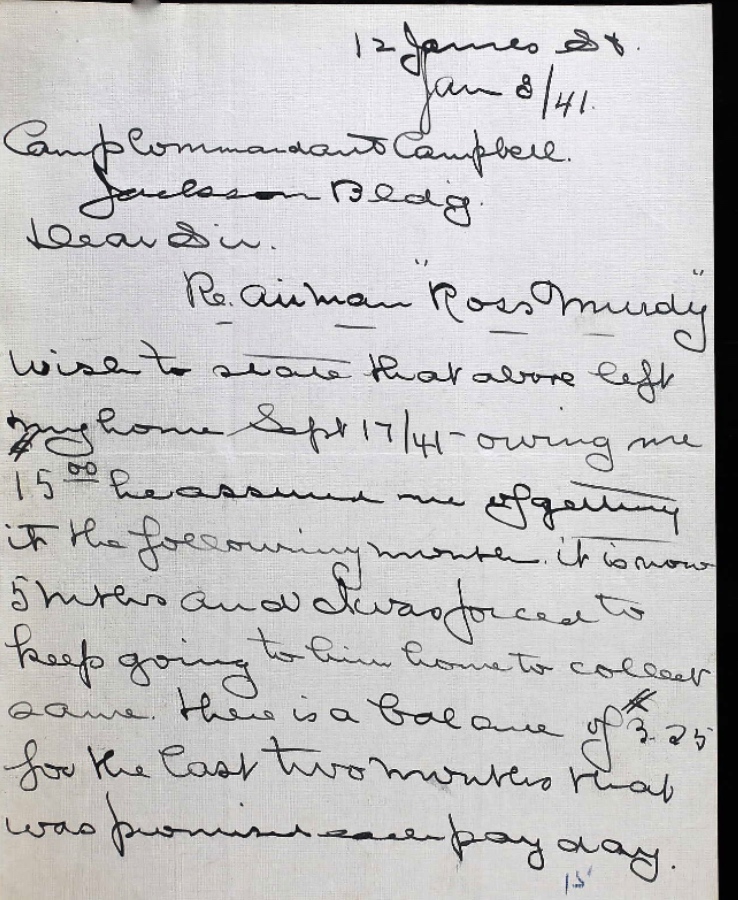 12 James St.
Jan 8/41.
Camp Commandant Campbell.
Jackson Bldg.
Dear Sir.
Re. Airman "Ross Murdy"
wish to state that above left
my home Sept 17/41 - owing me
# 15 00 he assured me of getting
it the following month. it is now
5 mths and I was forced to
keep going to him home to collect
same. there is a balance of # 3.25
for the last two months that
was promised each pay day.
15